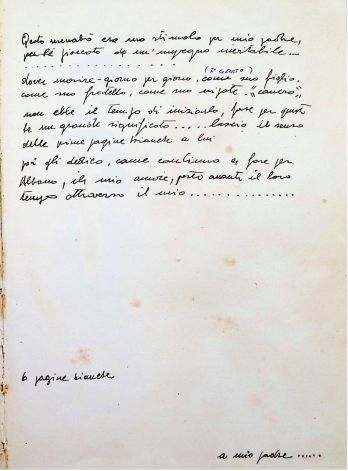 Questo menabò era uno stimolo per mio padre,
perché giocato da un'impegno inevitabile...
dover morire - giorno per giorno, come suo figlio,
(3° GENITO)
come suo fratello, come suo nipote. "cancro",
non ebbe il tempo di iniziarlo, forse per questo
ha un grande significato ..... lascio il senso
delle prime pagine bianche a lui
poi gli dedico, come continuo a fare per
Albano, il mio amore, porto avanti il loro
tempo attraverso il mio ...............
6 pagine bianche
a mio padre ......